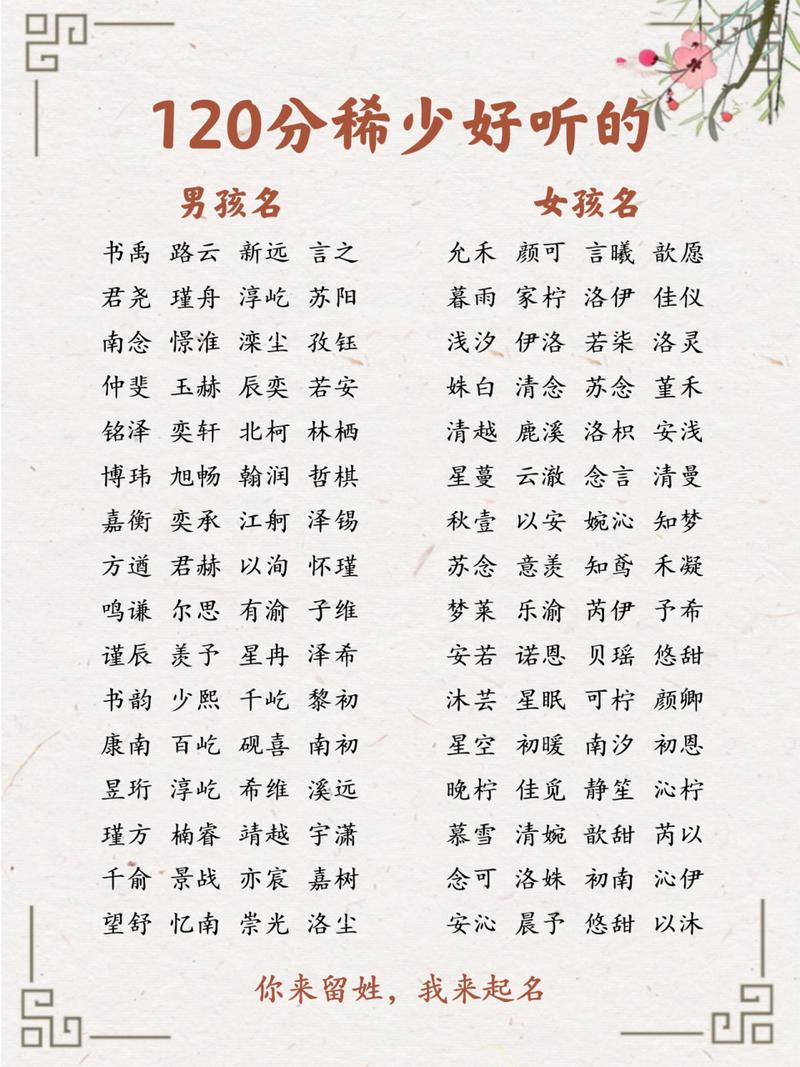 120分稀少好听的
男孩名
书禹 路云 新远 言之
君尧 瑾舟 淳屹 苏阳
南念 憬淮 滦尘 孜钰
仲斐 玉赫 辰奕 若安
铭泽 奕轩 北柯 林栖
博玮 旭畅 翰润 哲棋
嘉衡 奕承 江舸 泽锡
方遒 君赫 以洵 怀瑾
鸣谦 尔思 有渝 子维
谨辰 羡予 星冉 泽希
书韵 少熙 千屹 黎初
康南 百屹 砚喜 南初
昱珩 淳屹 希维 溪远
瑾方 楠睿 靖越 宇潇
千俞 景战 亦宸 嘉树
望舒 忆南 崇光 洛尘
女孩名
允禾 颜可 言曦 歆愿
暮雨 家柠 洛伊 佳仪
浅汐 伊洛 若柒 洛灵
姝白 清念 苏念 堇禾
清越 鹿溪 洛枳 安浅
星蔓 云澈 念言 清曼
秋壹 以安 婉沁 知梦
苏念 意羡 知鸢 禾凝
梦莱 乐渝 芮伊 予希
安若 诺恩 贝瑶 悠甜
沐芸 星眠 可柠 颜卿
星空 初暖 南汐 初恩
晚柠 佳觅 静笙 沁柠
慕雪 清婉 歆甜 芮以
念可 洛姝 初南 沁伊
安沁 晨予 悠甜 以沐
你来留姓，我来起名